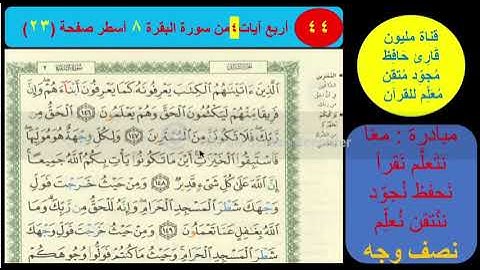 ٤٤
أربع آيات ٤ من سورة البقرة ٨ أسطر صفحة (٢٣)
الَّذِينَ ءَاتَيْنَٰهُمُ الْكِتَٰبَ يَعْرِفُونَهُۥ كَمَا يَعْرِفُونَ أَبْنَآءَهُمْ ۖ وَإِنَّ
فَرِيقًا مِّنْهُمْ لَيَكْتُمُونَ الْحَقَّ وَهُمْ يَعْلَمُونَ ١٤٦ الْحَقُّ مِن
رَّبِّكَ ۖ فَلَا تَكُونَنَّ مِنَ الْمُمْتَرِينَ ١٤٧ وَلِكُلٍّ وِجْهَةٌ هُوَ مُوَلِّيهَا ۖ
فَاسْتَبِقُوا الْخَيْرَٰتِ ۚ أَيْنَ مَا تَكُونُوا يَأْتِ بِكُمُ اللَّهُ جَمِيعًا ۚ
إِنَّ اللَّهَ عَلَىٰ كُلِّ شَىْءٍ قَدِيرٌ ١٤٨ وَمِنْ حَيْثُ خَرَجْتَ فَوَلِّ
وَجْهَكَ شَطْرَ الْمَسْجِدِ الْحَرَامِ ۖ وَإِنَّهُۥ لَلْحَقُّ مِن رَّبِّكَ ۗ وَمَا
اللَّهُ بِغَٰفِلٍ عَمَّا تَعْمَلُونَ ١٤٩ وَمِنْ حَيْثُ خَرَجْتَ فَوَلِّ
وَجْهَكَ شَطْرَ الْمَسْجِدِ الْحَرَامِ ۚ وَحَيْثُ مَا كُنتُمْ فَوَلُّوا وُجُوهَكُمْ
قناة مليون
قارئ حافظ
مُجوّد مُتقن
مُعلّم للقرآن
مبادرة : معًا
نتعلّم نَقرأ
نَحفظ نُجوّد
نُتقن نُعلّم
نصف وجه